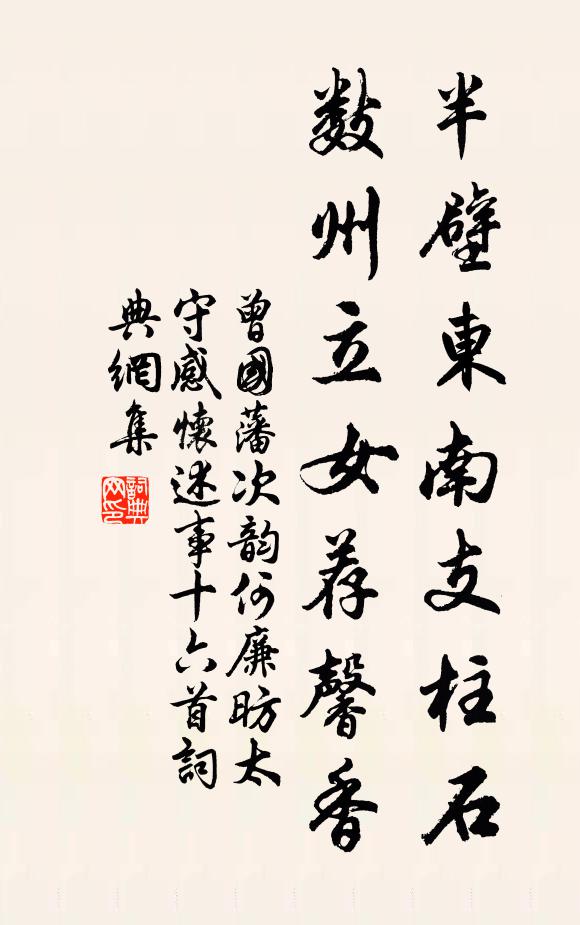 半壁東南支柱石
數州立女荐馨香
曾國藩次韵何廉昉太
守感懷述事十六首詞
典網集
詞典
网印